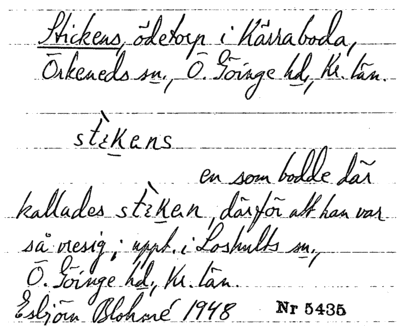 Stickens, ödetorp i Kärraboda,
Örkeneds sn., Ö. Göinge hd., Kr. län.
stìkens
en som bodde där
kallades stìken, därför att han var
så vresig; uppt. i Loshults sn.,
Ö. Göinge hd., Kr. län.
Esbjörn 1948 Nr 5435